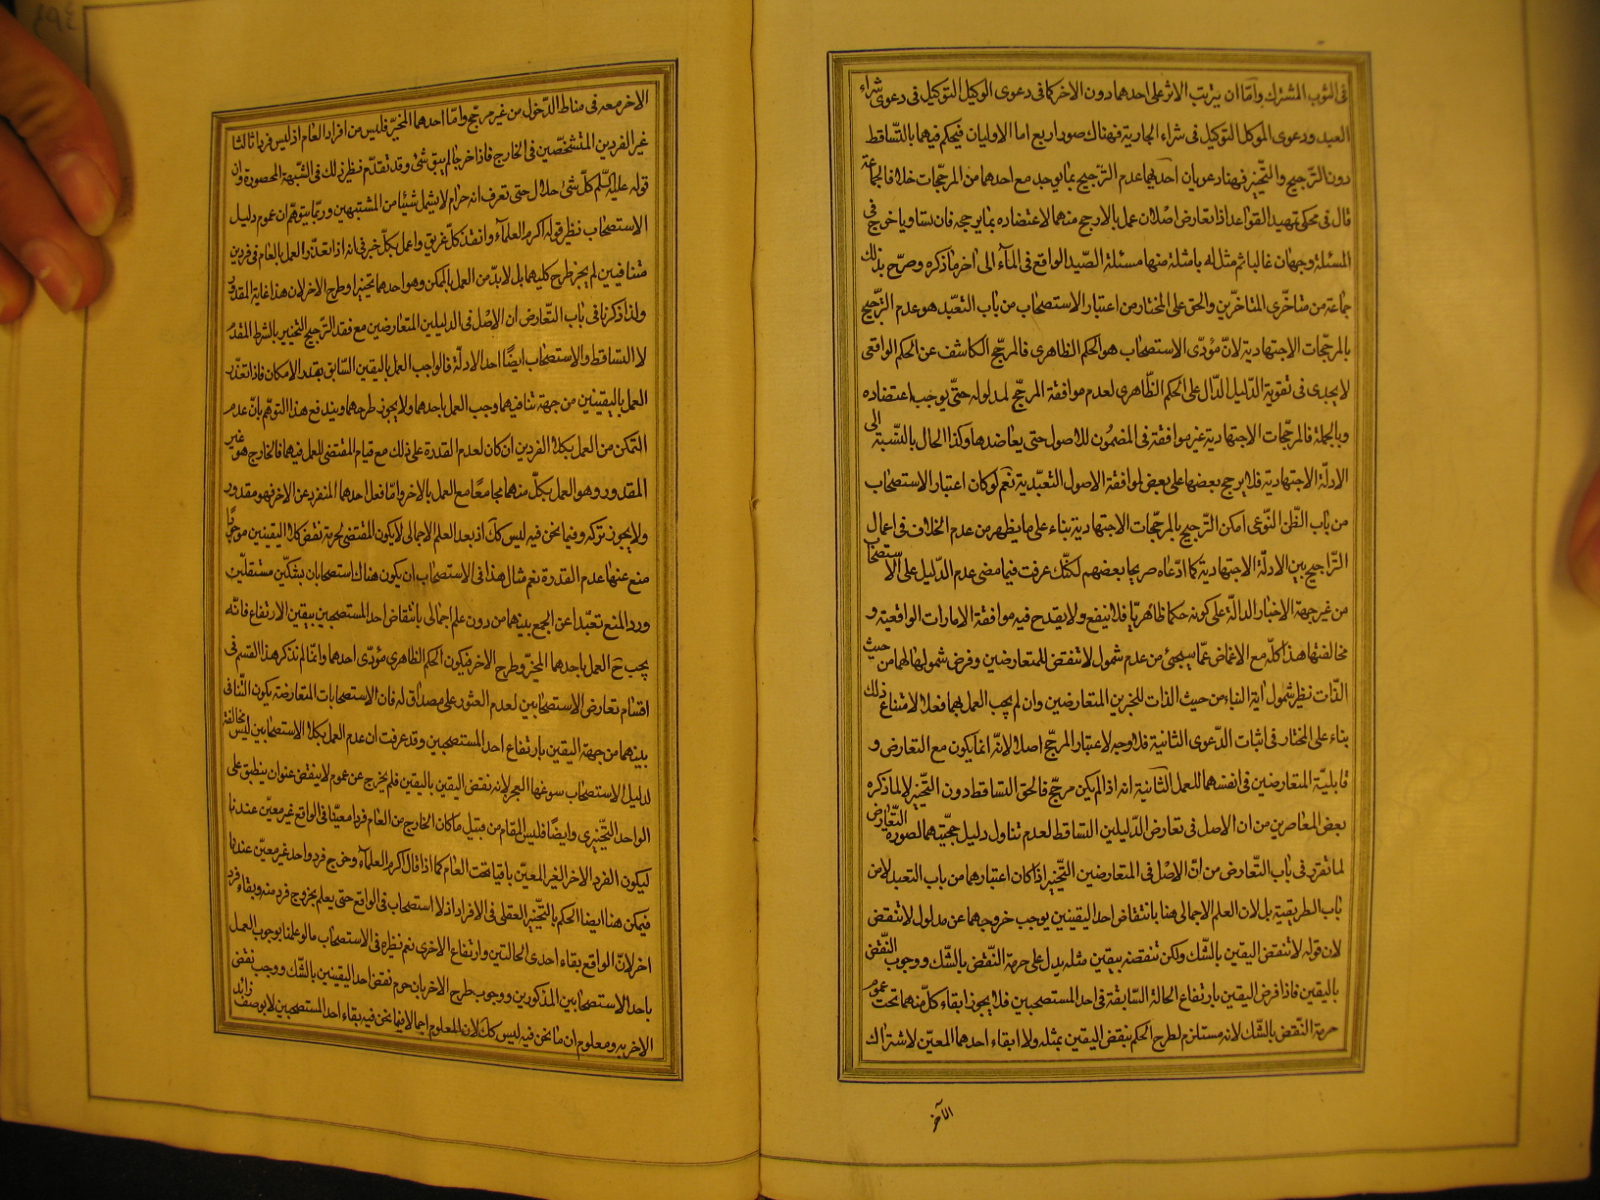 فى الثوب المشترك واما ان يترتب الاثر على احدهما دون الاخر كما فى دعوى الوكيل التوكيل فى دعوى شراء
العبد ودعوى الموكل التوكيل فى شراء الجارية فهناك صور اربع اما الاوليان فيحكم فيهما بالتساقط
دون الترجيح والتخيير فهنا دعويان احديهما عدم الترجيح بما يوجد مع احدهما من المرجحات خلافا لجماعة
قال فى محكى تمهيد القواعد اذا تعارض اصلان عمل بالارجح منهما لاعتضاده بما يرجحه فان تساويا خرج فى
المسئلة وجهان غالبا ثم مثل له بامثلة منها مسئلة الصيد الواقع فى الماء الى اخر ما ذكره وصرح بذلك
جماعة من متاخرى المتاخرين والحق على المختار من اعتبار الاستصحاب من باب التعبد هو عدم الترجيح
بالمرجحات الاجتهادية لان مؤدى الاستصحاب هو الحكم الظاهرى فالمرجح الكاشف عن الحكم الواقعى
لا يجدى فى تقوية الدليل الدال على الحكم الظاهرى لعدم موافقة المرجح لمدلوله حتى يوجب اعتضاده
وبالجملة فالمرجحات الاجتهادية غير موافقة فى المضمون للاصول حتى يعاضدها وكذا الحال بالنسبة الى
الادلة الاجتهادية فلا يرجح بعضها على بعض لموافقة الاصول التعبدية نعم لو كان اعتبار الاستصحاب
من باب الظن النوعى امكن الترجيح بالمرجحات الاجتهادية بناء على ما يظهر من عدم الخلاف فى اعمال
التراجيح بين الادلة الاجتهادية كما ادعاه صريحا بعضهم لكنك عرفت فيما مضى عدم الدليل على الاستصحاب
من غير جهة الاخبار الدالة على كونه حكما ظاهريا فلا ينفع ولا يقدح فيه موافقة الامارات الواقعية و
مخالفتها هذا كله مع الاغماض عما سيجئ من عدم شمول لا تنقض للمتعارضين وفرض شمولها لهما من حيث
الذات نظير شمول اية النباء من حيث الذات للخبرين المتعارضين وان لم يجب العمل بهما فعلا لامتناع ذلك
بناء على المختار فى اثبات الدعوى الثانية فلا وجه لاعتبار المرجح اصلا لانه انما يكون مع التعارض و
قابلية المتعارضين فى انفسهما للعمل الثانية انه اذا لم يكن مرجح فالحق التساقط دون التخيير لا لما ذكره
بعض المعاصرين من ان الاصل فى تعارض الدليلين التساقط لعدم تناول دليل حجيتهما لصورة التعارض
لما تقرر فى باب التعارض من ان الاصل فى المتعارضين التخيير اذا كان اعتبارهما من باب التعبد لا من
باب الطريقية بل لان العلم الاجمالى هنا بانتقاض احد اليقينين يوجب خروجهما عن مدلول لا تنقض
لان قوله لا تنقض اليقين بالشك ولكن تنقضه بيقين مثله يدل على حرمة النقض بالشك ووجوب النقض
باليقين فاذا فرض اليقين بارتفاع الحالة السابقة فى احد المستصحبين فلا يجوز ابقاء كل منهما تحت عموم
حرمة النقض بالشك لانه مستلزم لطرح الحكم بنقض اليقين بمثله ولا ابقاء احدهما المعين لاشتراك
الآخر
الاخر معه فى مناط الدخول من غير مرجح واما احدهما المخير فليس من افراد العام اذ ليس فردا ثالثا
غير الفردين المتشخصين فى الخارج فاذا خرجا لم يبق شئ وقد تقدم نظير ذلك فى الشبهة المحصورة وان
قوله عليه السلم كل شئ حلال حتى تعرف انه حرام لا يشمل شيئا من المشتبهين وربما يتوهم ان عموم دليل
الاستصحاب نظير قوله اكرم العلماء وانقذ كل غريق واعمل بكل خبر فى انه اذا تعذر العمل بالعام فى فردين
متنافيين لم يجز طرح كليهما بل لا بد من العمل بالممكن وهو احدهما تخييرا وطرح الاخر لان هذا غاية المقدور
ولذا ذكرنا فى باب التعارض ان الاصل فى الدليلين المتعارضين مع فقد الترجيح التخيير بالشرط المقدم
لا التساقط والاستصحاب ايضا احد الادلة فالواجب العمل باليقين السابق بقدر الامكان فاذا تعذر
العمل باليقينين من جهة تنافيهما وجب العمل باحدهما ولا يجوز طرحهما ويندفع هذا التوهم بان عدم
التمكن من العمل بكلا الفردين ان كان لعدم القدرة على ذلك مع قيام المقتضى للعمل فيهما فالخارج هو غير
المقدور وهو العمل بكل منهما مجامعا مع العمل بالاخر واما فعل احدهما المنفرد عن الاخر فهو مقدور
ولا يجوز تركه وفيما نحن فيه ليس كك اذ بعد العلم الاجمالى لا يكون المقتضى لحرمة نقض كلا اليقينين موجودا
منع عنهما عدم القدرة نعم مثال هذا فى الاستصحاب ان يكون هناك استصحابان بشكين مستقلين
ورد المنع تعبدا عن الجمع بينهما من دون علم اجمالى بانتقاض احد المستصحبين بيقين الارتفاع فانه
يجب ح العمل باحدهما المخير وطرح الاخر فيكون الحكم الظاهرى مؤدى احدهما وانما لم نذكر هذا القسم فى
اقسام تعارض الاستصحابين لعدم العثور على مصداق له فان الاستصحابات المتعارضة يكون التنافى
بينهما من جهة اليقين بارتفاع احد المستصحبين وقد عرفت ان عدم العمل بكلا الاستصحابين ليس مخالفة
لدليل الاستصحاب سوغها العجز لانه نقض اليقين باليقين فلم يخرج عن عموم لا ينقض عنوان ينطبق على
الواحد التخييرى وايضا فليس المقام من قبيل ما كان الخارج من العام فردا معينا فى الواقع غير معين عندنا
ليكون الفرد الاخر الغير المعين باقيا تحت العام كما اذا قال اكرم العلماء وخرج فرد واحد غير معين عندنا
فيمكن هنا ايضا الحكم بالتخيير العقلى فى الافراد اذ لا استصحاب فى الواقع حتى يعلم بخروج فرد منه وبقاء فرد
اخر لان الواقع بقاء احدى الحالتين وارتفاع الاخرى نعم نظيره فى الاستصحاب ما لو علمنا بوجوب العمل
باحد الاستصحابين المذكورين ووجوب طرح الاخر بان حرم نقض احد اليقينين بالشك ووجب نقض
الاخر به ومعلوم ان ما نحن فيه ليس كك لان المعلوم اجمالا فيما نحن فيه بقاء احد المستصحبين لا بوصف زائد